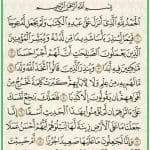 بِسْمِ اللَّهِ الرَّحْمَٰنِ الرَّحِيمِ
الْحَمْدُ لِلَّهِ الَّذِي أَنزَلَ عَلَىٰ عَبْدِهِ الْكِتَابَ وَلَمْ يَجْعَل لَّهُ عِوَجًا ۜ ١
قَيِّمًا لِّيُنذِرَ بَأْسًا شَدِيدًا مِّن لَّدُنْهُ وَيُبَشِّرَ الْمُؤْمِنِينَ
الَّذِينَ يَعْمَلُونَ الصَّالِحَاتِ أَنَّ لَهُمْ أَجْرًا حَسَنًا ٢
مَّاكِثِينَ فِيهِ أَبَدًا ٣ وَيُنذِرَ الَّذِينَ قَالُوا اتَّخَذَ اللَّهُ وَلَدًا ٤
مَّا لَهُم بِهِ مِنْ عِلْمٍ وَلَا لِآبَائِهِمْ ۚ كَبُرَتْ كَلِمَةً تَخْرُجُ مِنْ
أَفْوَاهِهِمْ ۚ إِن يَقُولُونَ إِلَّا كَذِبًا ٥ فَلَعَلَّكَ بَاخِعٌ نَّفْسَكَ
عَلَىٰ آثَارِهِمْ إِن لَّمْ يُؤْمِنُوا بِهَٰذَا الْحَدِيثِ أَسَفًا ٦ إِنَّا
جَعَلْنَا مَا عَلَى الْأَرْضِ زِينَةً لَّهَا لِنَبْلُوَهُمْ أَيُّهُمْ أَحْسَنُ عَمَلًا ٧
وَإِنَّا لَجَاعِلُونَ مَا عَلَيْهَا صَعِيدًا جُرُزًا ٨ أَمْ حَسِبْتَ